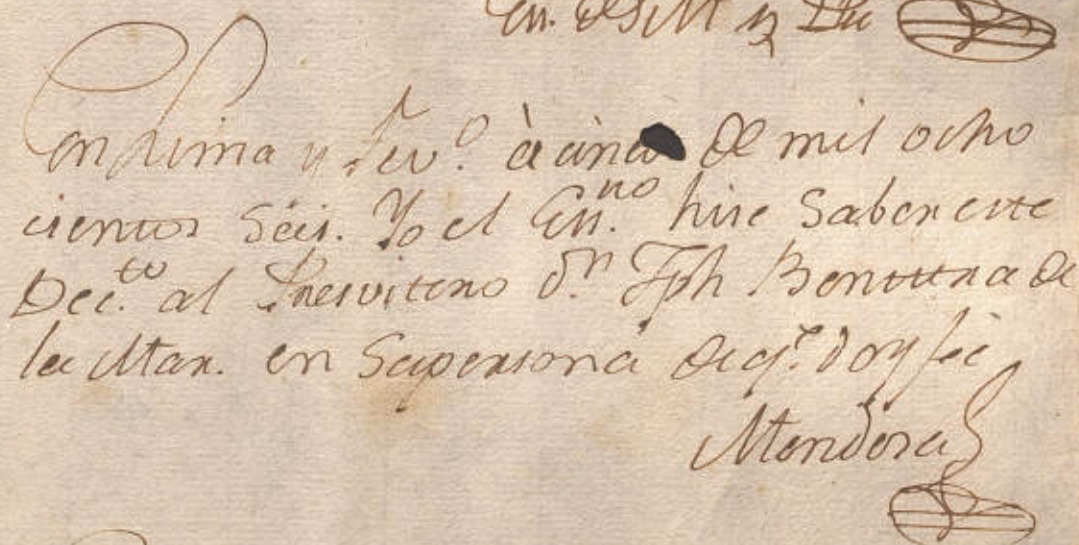 En Lima y Fevº. à cinco de mil ocho
cientos séis. Yo el Essno. hise Saber este
Decto. al Presvitero Dn. Jph Bentura de
la Mar. en Supersona de qe. doy fée
Mendosa